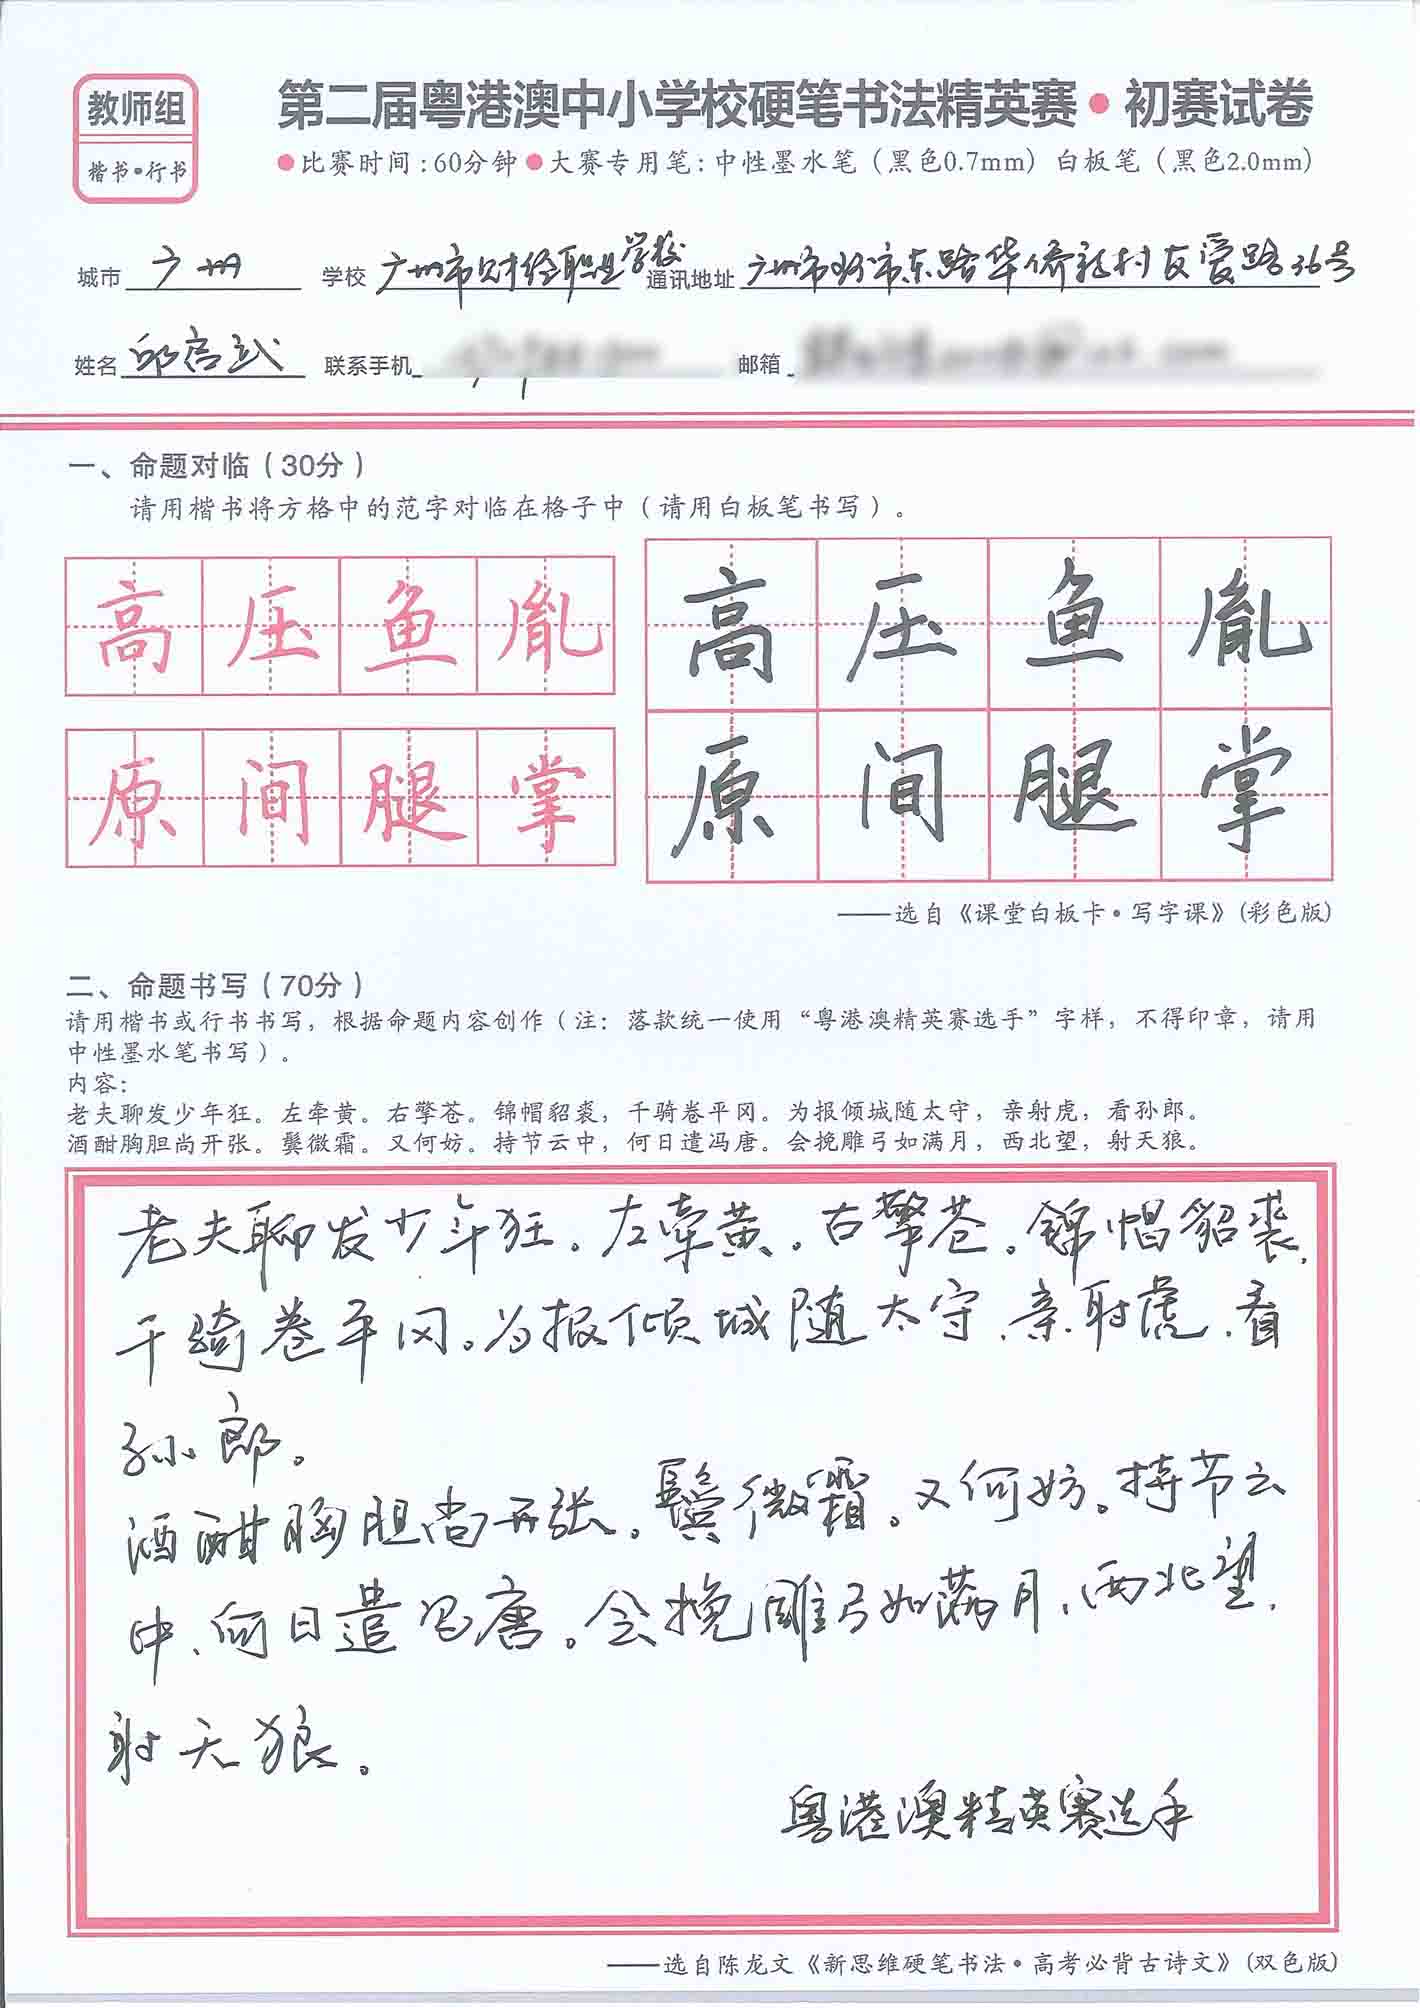 教师组
楷书·行书
第二届粤港澳中小学校硬笔书法精英赛·初赛试卷
●比赛时间:60分钟●大赛专用笔:中性墨水笔(黑色0.7mm) 白板笔(黑色2.0mm)
城市 广州 学校 广州市财经职业学校 通讯地址 广州市环市东路华侨新村友爱路36号
姓名 邱 武 联系手机 邮箱
一、命题对临(30分)
请用楷书将方格中的范字对临在格子中(请用白板笔书写)。
高压鱼胤 高压鱼胤
原间腿掌 原间腿掌
——选自《课堂白板卡·写字课》(彩色版)
二、命题书写(70分)
请用楷书或行书书写,根据命题内容创作(注:落款统一使用“粤港澳精英赛选手”字样,不得印章,请用
中性墨水笔书写)。
内容:
老夫聊发少年狂。左牵黄。右擎苍。锦帽貂裘,千骑卷平冈。为报倾城随太守,亲射虎,看孙郎。
酒酣胸胆尚开张。鬓微霜。又何妨。持节云中,何日遣冯唐。会挽雕弓如满月,西北望,射天狼。
老夫聊发少年狂。左牵黄。右擎苍。锦帽貂裘,
千骑卷平冈。为报倾城随太守,亲射虎,看
孙郎。
酒酣胸胆尚开张。鬓微霜。又何妨。持节云
中,何日遣冯唐。会挽雕弓如满月,西北望,
射天狼。
粤港澳精英赛选手
——选自陈龙文《新思维硬笔书法·高考必背古诗文》(双色版)